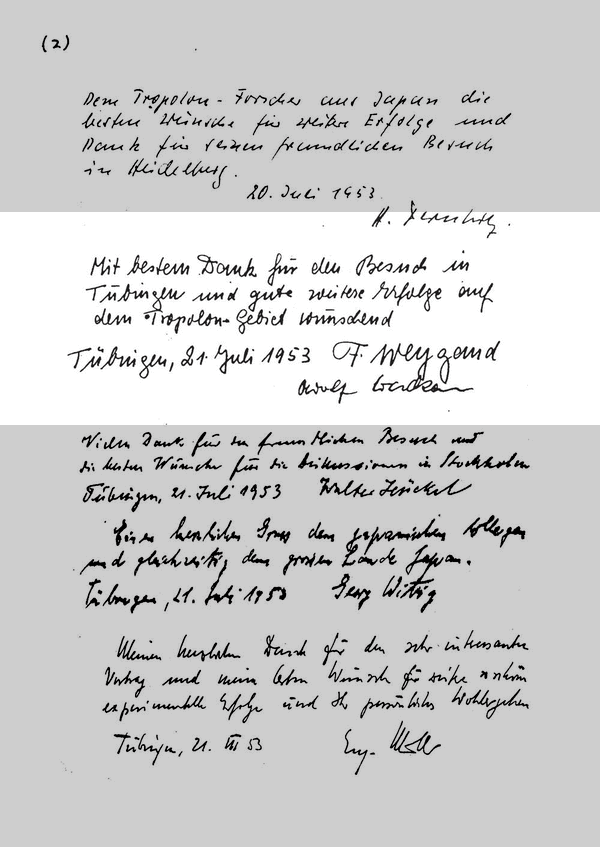 (2)
Dem Tropolon-Forscher aus Japan die
besten Wünsche für weitere Erfolge und
Dank für seinen freundlichen Besuch
in Heidelberg.
20. Juli 1953.
H.
Mit bestem Dank für den Besuch in
Tübingen und gute weitere Erfolge auf
dem Tropolon-Gebiet wünschend
Tübingen, 21. Juli 1953 F. Weygand
Adolf
Vielen Dank für den freundlichen Besuch und
die besten Wünsche für die Diskussionen in Stockholm
Tübingen, 21. Juli 1953 Walter Hückel
Einen herzlichen Gruss dem japanischen Kollegen
und gleichzeitig dem grossen Lande Japan.
Tübingen, 21. Juli 1953 Georg Wittig
Meinen herzlichen Dank für den sehr interessanten
Vortrag und meine besten Wünsche für weitere schöne
experimentelle Erfolge und Ihr persönliches Wohlergehen
Tübingen, 21. VII 53 Eug. Müller